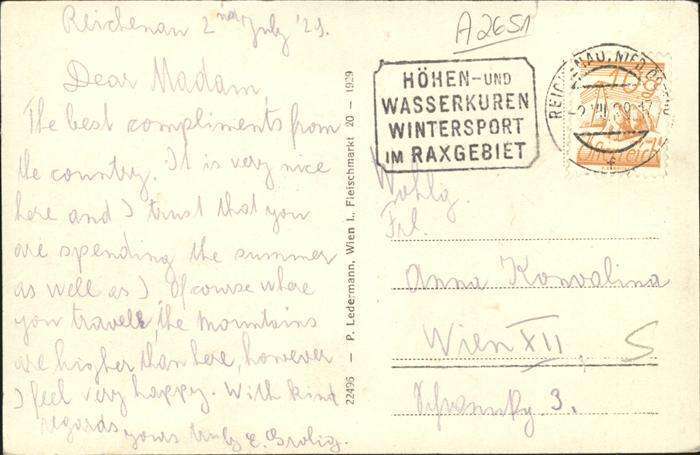 Reichenau 2nd July '29.
Dear Madam
The best compliments from
the country. It is very nice
here and I trust that you
are spending the summer
as well as I. Of course where
you travele, the mountains
are higher than here, however
I feel very happy. With kind
regards yours truly E.
22496 – P. Ledermann, Wien I., Fleischmarkt 20 – 1929
A2651
HÖHEN- UND
WASSERKUREN
WINTERSPORT
IM RAXGEBIET
Wohlg.
Frl.
Anna Konvalina
Wien XII, S
3.